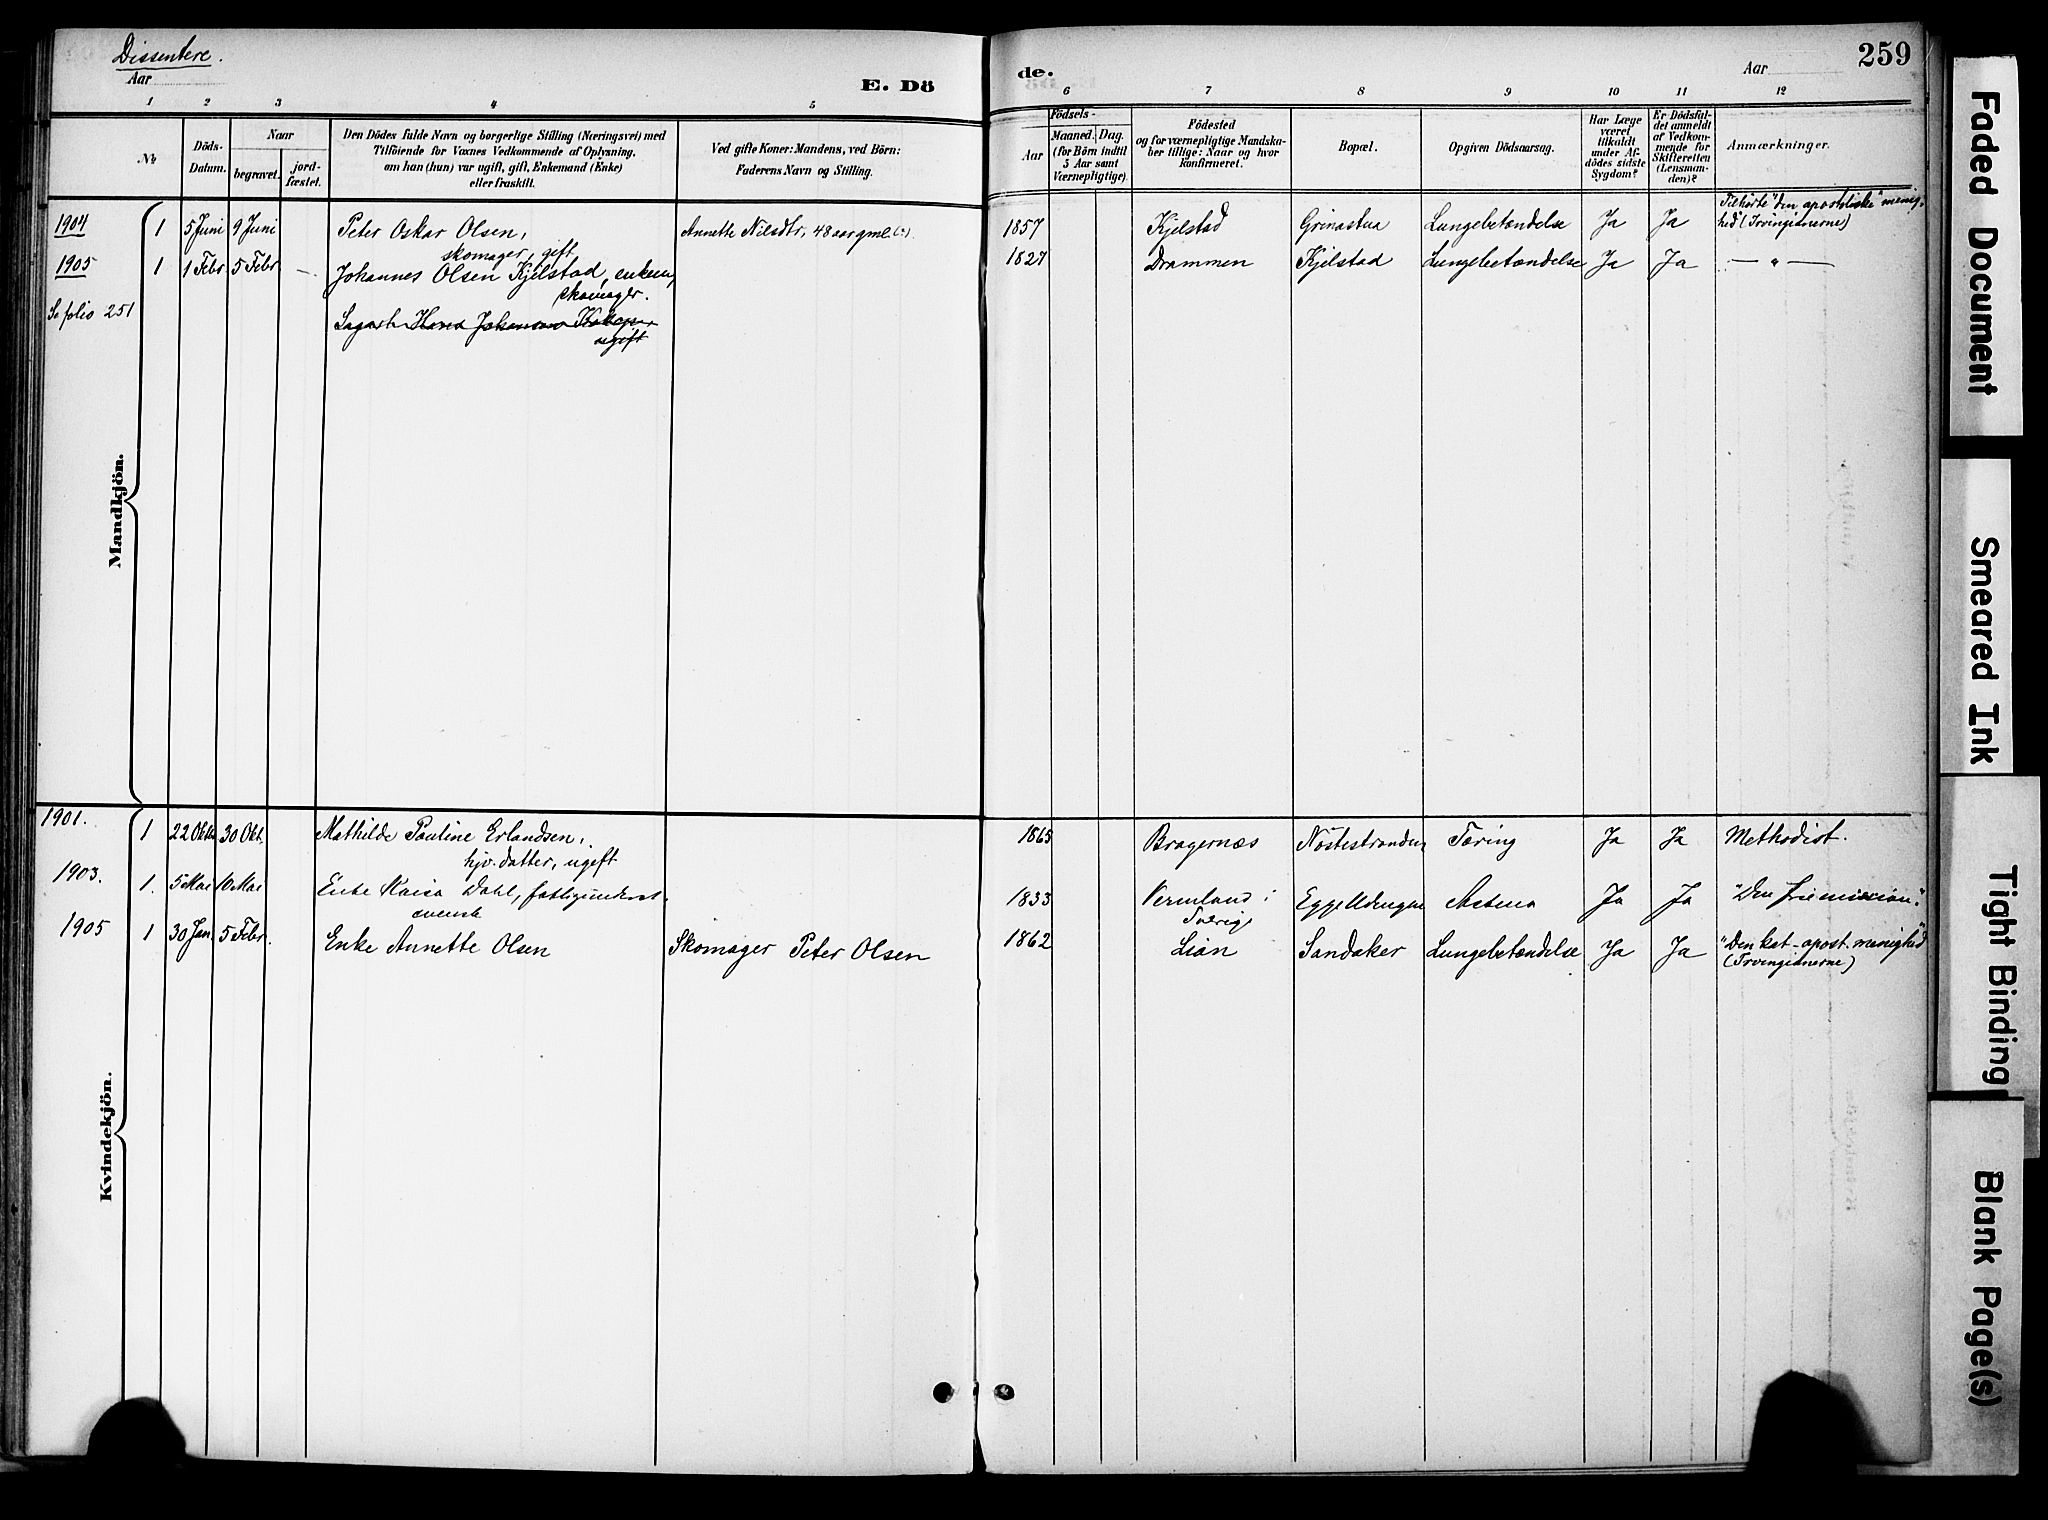 Dissentere.
Aar
E. Dö
de.
Aar
259
1 2 3 4 5 6 7 8 9 10 11 12
No
Döds-Datum.
Naar
begravet.
jord-fæstet.
Den Dödes fulde Navn og borgerlige Stilling (Næringsvei) med
Tilföiende for Voxnes Vedkommende af Oplysning,
om han (hun) var ugift, gift, Enkemand (Enke)
eller fraskilt.
Ved gifte Koner: Mandens, ved Börn:
Faderens Navn og Stilling.
Födsels-
Aar
Maaned. Dag.
(for Börn indtil
5 Aar samt
Værnepligtige).
Födested
og for værnepligtige Mandska-
ber tillige: Naar og hvor
konfirmeret.
Bopæl.
Opgiven Dödsaarsag.
Har Læge
været
tilkaldt
under Af-
dödes sidste
Sygdom?
Er Dödsfal-
det anmeldt
af Vedkom-
mende for
Skifteretten
(Lensman-
den)?
Anmærkninger.
Mandkjön.
1904 1 5 Juni 9 Juni Peter Oskar Olsen, Annette Nilsdtr, 48 aar gml. 1857 Kjelstad Grinastua Lungebetændelse Ja Ja Tilhørte "den apostoliske" menig-
skomager, gift hed (Irvingianerne)
1905 1 1 Febr 5 Febr — Johannes Olsen Kjelstad, enkem, 1827 Drammen Kjelstad Lungebetændelse Ja Ja — " —
skomager.
Se folio 251
ugift
Kvindekjön.
1901. 1 22 Okt 30 Okt. Mathilde Pauline Erlandsen, 1865 Bragernæs Nöstestranden Tæring Ja Ja Methodist.
hjv. datter, ugift
1903. 1. 5 Mai 10 Mai Enke Kaisa Dahl, fattigunderst. 1833 Vermland i Asthma Ja Ja "Den frie mission."
svensk Sverige
1905 1 30 Jan. 5 Febr. Enke Annette Olsen Skomager Peter Olsen 1862 Lian Sandaker Lungebetændelse Ja Ja "Den kat-apost. menighed"
(Irvingianerne)
Faded Document
Smeared Ink
Tight Binding
Blank Page(s)